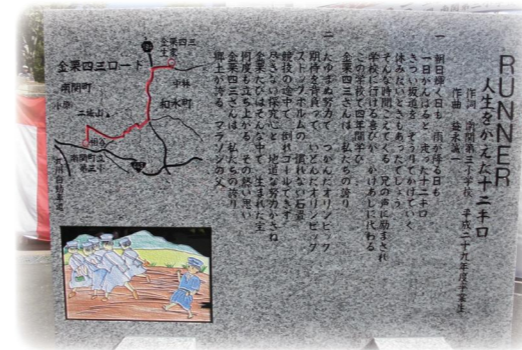 RUNNER
人生をかえた十二キロ
作詞 南関第三小学校 平成二十九年度卒業生
作曲
一 朝日輝く日も 雨が降る日も
一日がんばると 走った十二キロ
きつい坂道を ぞうりでかけていく
休みたいときもあったでしょう
そんな時間こえてくる 兄の声に励まされ
学校に行ける喜びが かけあしに代わる
この学校で四年間学び
金栗四三さんは 私たちの誇り
二 たゆまぬ努力で つかんだオリンピック
期待を背負って いどんだオリンピック
ストックホルムの 慣れない石畳
競技の途中で 倒れゴールできず
尽きない探究心と 地道な努力かさね
金栗たびはそんな中で 生まれた宝
何度も立ち上がる その熱い思い
金栗四三さんは 私たちの誇り
郷土が誇る マラソンの父
金栗四三ロード
金栗四三
生家
南関町
和水町
小原
南関町立
第三小